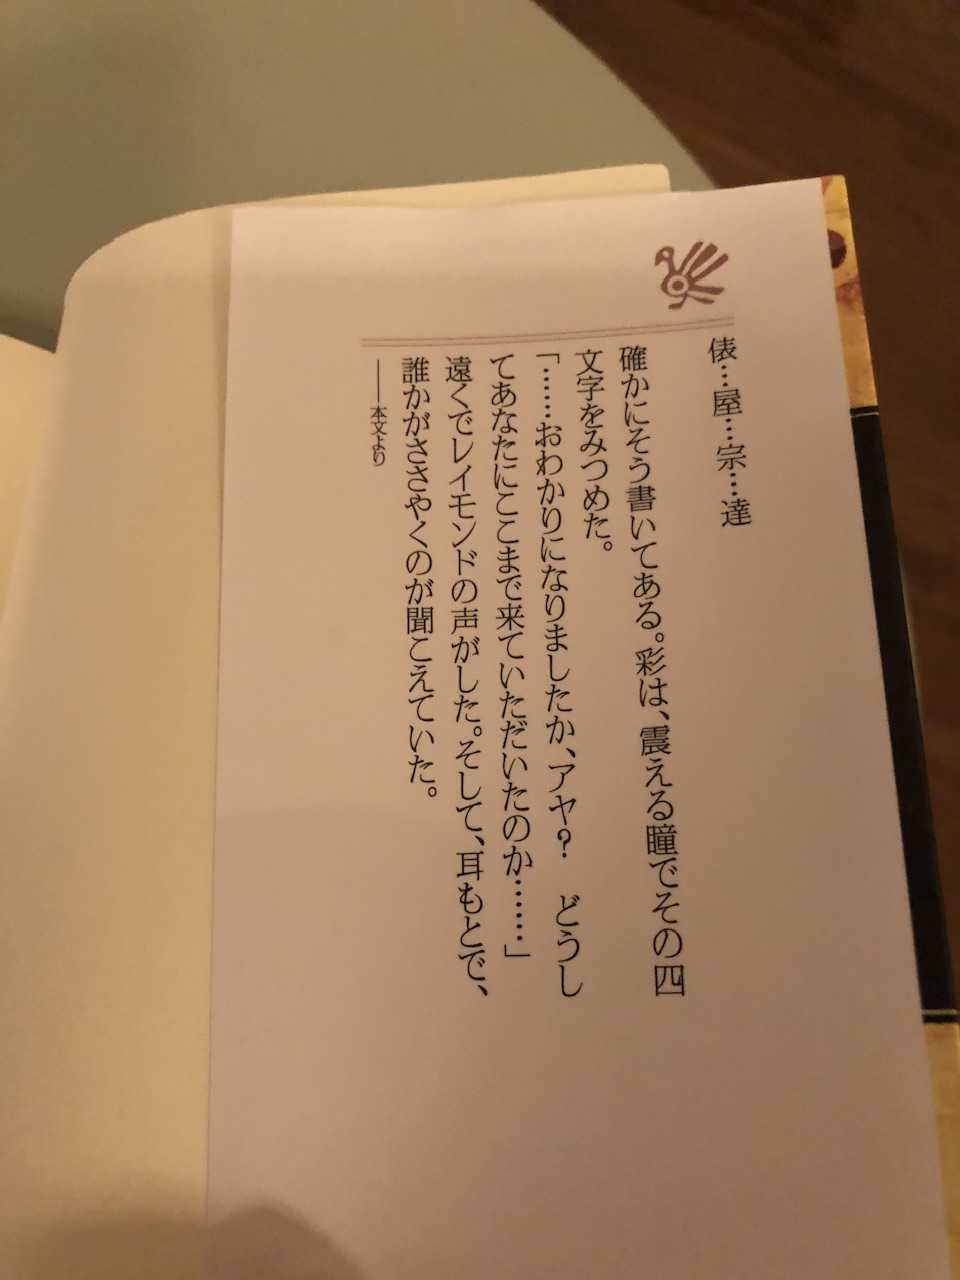 俵…屋…宗…達
確かにそう書いてある。彩は、震える瞳でその四
文字をみつめた。
「……おわかりになりましたか、アヤ?　どうし
てあなたにここまで来ていただいたのか……」
遠くでレイモンドの声がした。そして、耳もとで、
誰かがささやくのが聞こえていた。
――本文より